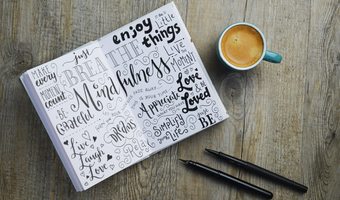 enjoy
the
little
things
Just
BREATHE
MAKE
every
MOMENT
count
Mindfulness
LIVE
the
MOMENT
BE
Grateful
Appreciate
Love
& be
Loved
DREAMS
Simplify
Life
Just
BE
Live
Laugh
Love